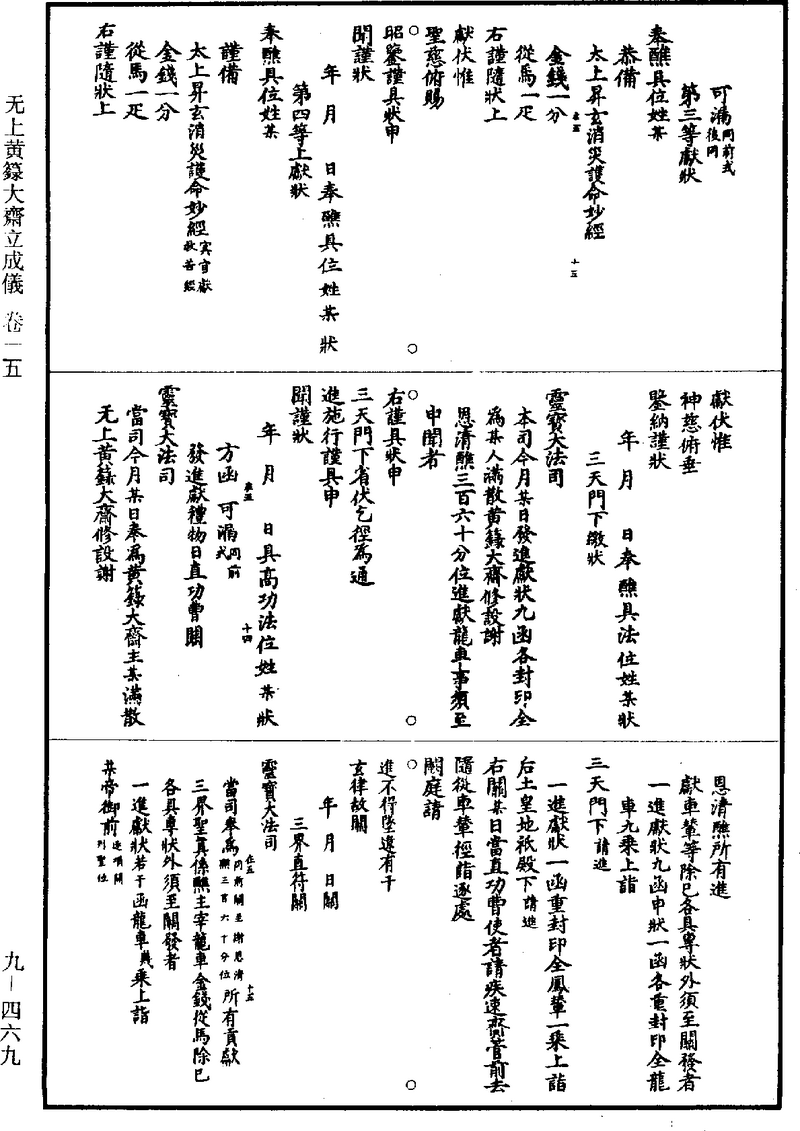 可漏同前式後同
第三等獻狀
奉醮具位姓某
恭備
太上昇玄消災護命妙經
金錢一分
從馬一疋
右謹隨狀上
獻伏惟
聖慈俯賜
昭鑒謹具狀申
聞謹狀
年 月 日奉醮具位姓某狀
第四等上獻狀
奉醮具位姓某
謹備
太上昇玄消災護命妙經冥官獻救苦經
金錢一分
從馬一疋
右謹隨狀上
獻伏惟
神慈俯垂
鑒納謹狀
年 月 日奉醮具法位姓某狀
三天門下繳狀
靈寶大法司
本司今月某日發進獻狀九函各封印全
為某人滿散黃籙大齋修設謝
恩清醮三百六十分位進獻龍車事須至
申聞者
右謹具狀申
三天門下省伏乞徑為通
進施行謹具申
聞謹狀
年 月 日具高功法位姓某狀
方函可漏同前式
發進獻禮物日直功曹關
靈寶大法司
當司今月某日奉為黃籙大齋主某滿散
无上黃籙大齋修設謝
恩清醮所有進
獻車輦等除已各具專狀外須至關發者
一進獻狀九函申狀一函各重封印全龍
車九乘上詣
三天門下請進
一進獻狀一函重封印全鳳輦一乘上詣
后土皇地祇殿下請進
右關某日當直功曹使者請疾速齎管前去
隨從車輦徑詣逐處
闕庭請
進不得墜違有干
玄律故關
年 月 日關
三界直符關
靈寶大法司
當司奉為同前關至謝恩清醮三百六十分位所有貢獻
三界聖真係醮主宰龍車金錢從馬除已
各具專狀外須至關發者
一進獻狀若干函龍車幾乘上詣
某帝御前逐項開列聖位
无上黃籙大齋立成儀 卷一五
九－四六九